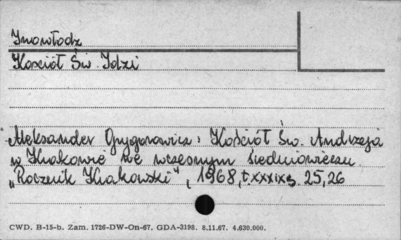 Inowłodz
Kościół Św. Idzi
Aleksander Grygorowicz: Kościół Św. Andrzeja
w Krakowie we wczesnym średniowieczu.
"Rocznik Krakowski", 1968, t. XXXIX s. 25, 26
CWD, B-15-h. Zam. 1726-DW-On-67. GDA-3198. 8.11.67. 4.630.000.